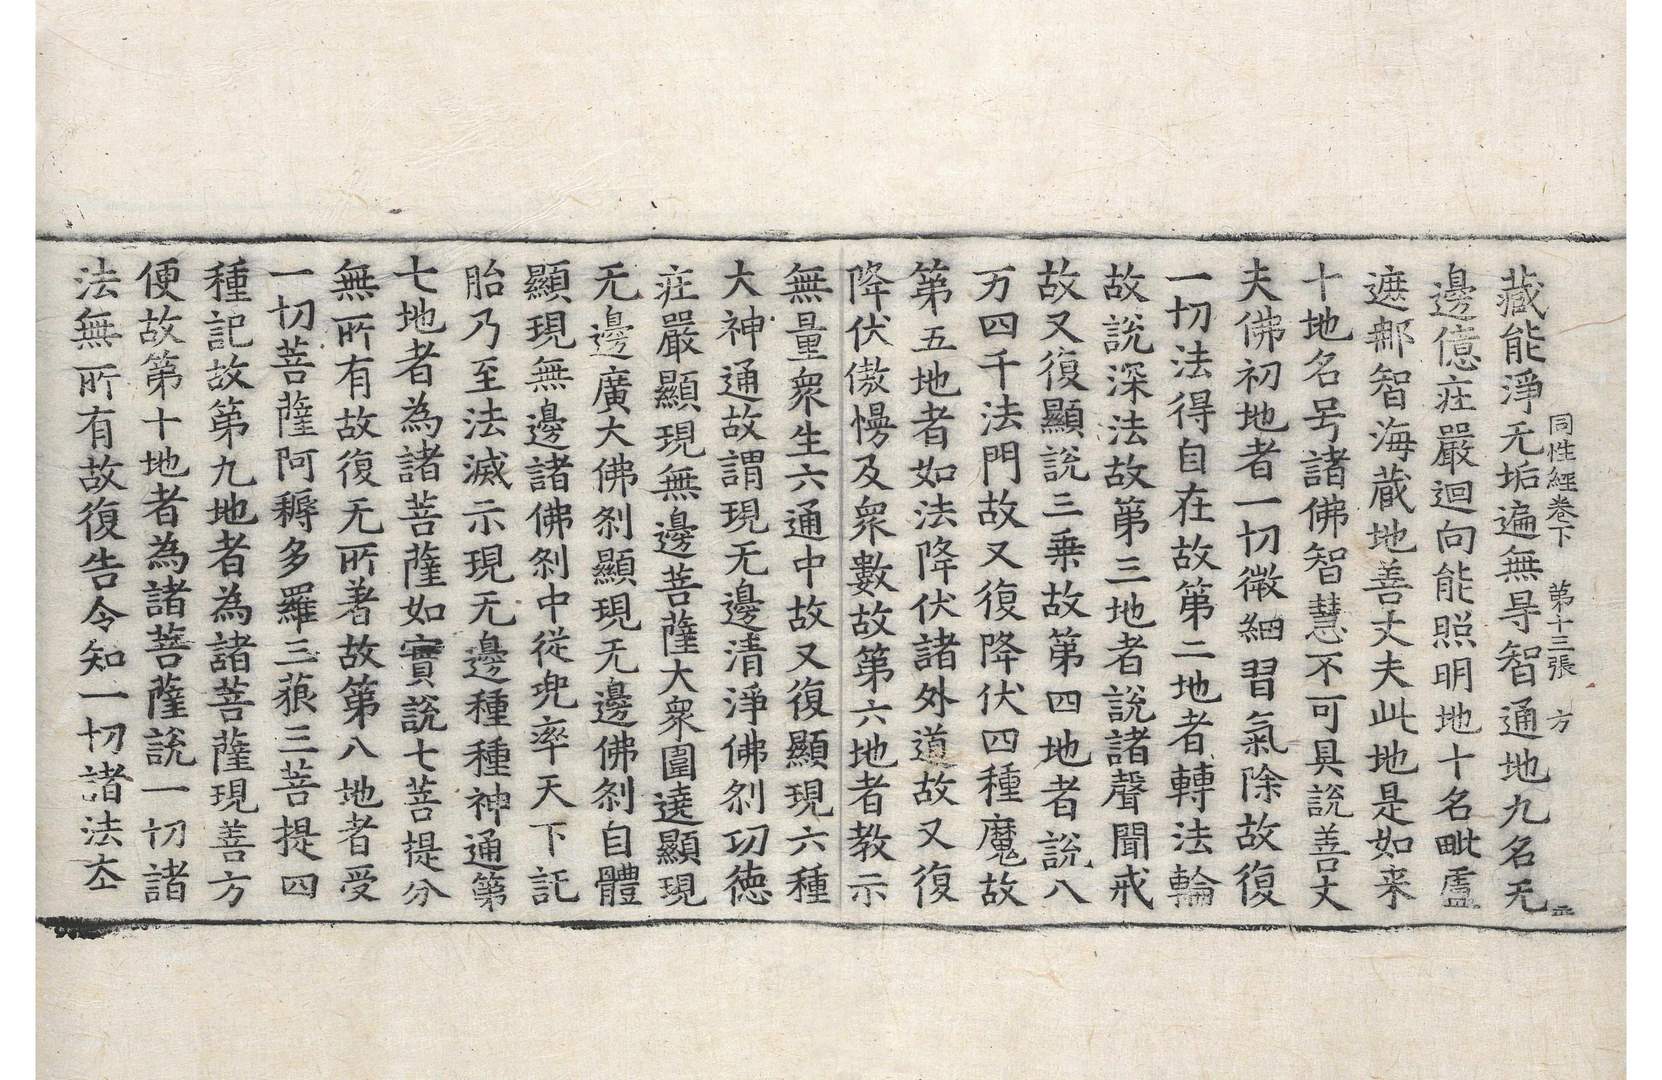 同性經卷下　第十三張　方
藏能淨无垢遍無㝵智通地九名无
邊億庄嚴迴向能照明地十名毗盧
遮那智海蔵地善丈夫此地是如来
十地名号諸佛智慧不可具説善丈
夫佛初地者一切微細習氣除故復
一切法得自在故第二地者轉法輪
故説深法故第三地者説諸聲聞戒
故又復顯説三乗故第四地者説八
万四千法門故又復降伏四種魔故
第五地者如法降伏諸外道故又復
降伏傲慢及衆數故第六地者教示
無量衆生六通中故又復顯現六種
大神通故謂現无邊清淨佛刹功徳
庄嚴顯現無邊菩薩大衆圍遶顯現
无邊廣大佛刹顯現无邊佛刹自體
顯現無邊諸佛刹中從兜率天下託
胎乃至法滅示現无邊種種神通第
七地者為諸菩薩如實説七菩提分
無所有故復无所著故第八地者受
一切菩薩阿耨多羅三藐三菩提四
種記故第九地者為諸菩薩現善方
便故第十地者為諸菩薩説一切諸
法無所有故復告令知一切諸法夲